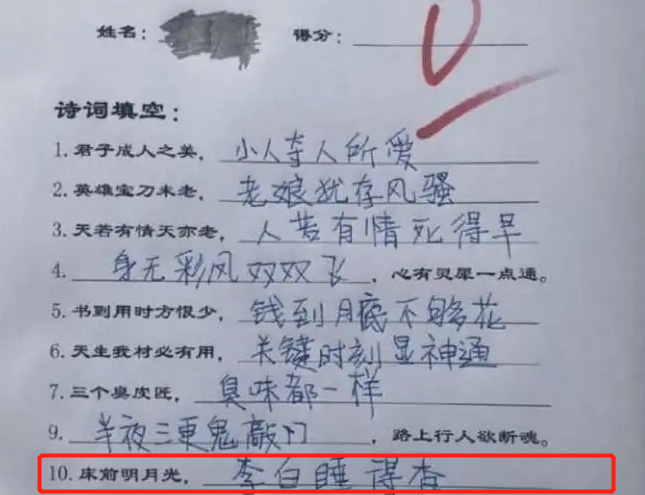 姓名： 得分： 0
诗词填空：
1. 君子成人之美， 小人夺人所爱
2. 英雄宝刀未老， 老娘犹存风骚
3. 天若有情天亦老， 人若有情死得早
4. 身无彩风双双飞 ，心有灵犀一点通。
5. 书到用时方恨少， 钱到月底不够花
6. 天生我材必有用， 关键时刻显神通
7. 三个臭皮匠， 臭味都一样
9. 半夜三更鬼敲门 ，路上行人欲断魂。
10. 床前明月光， 李白睡得香